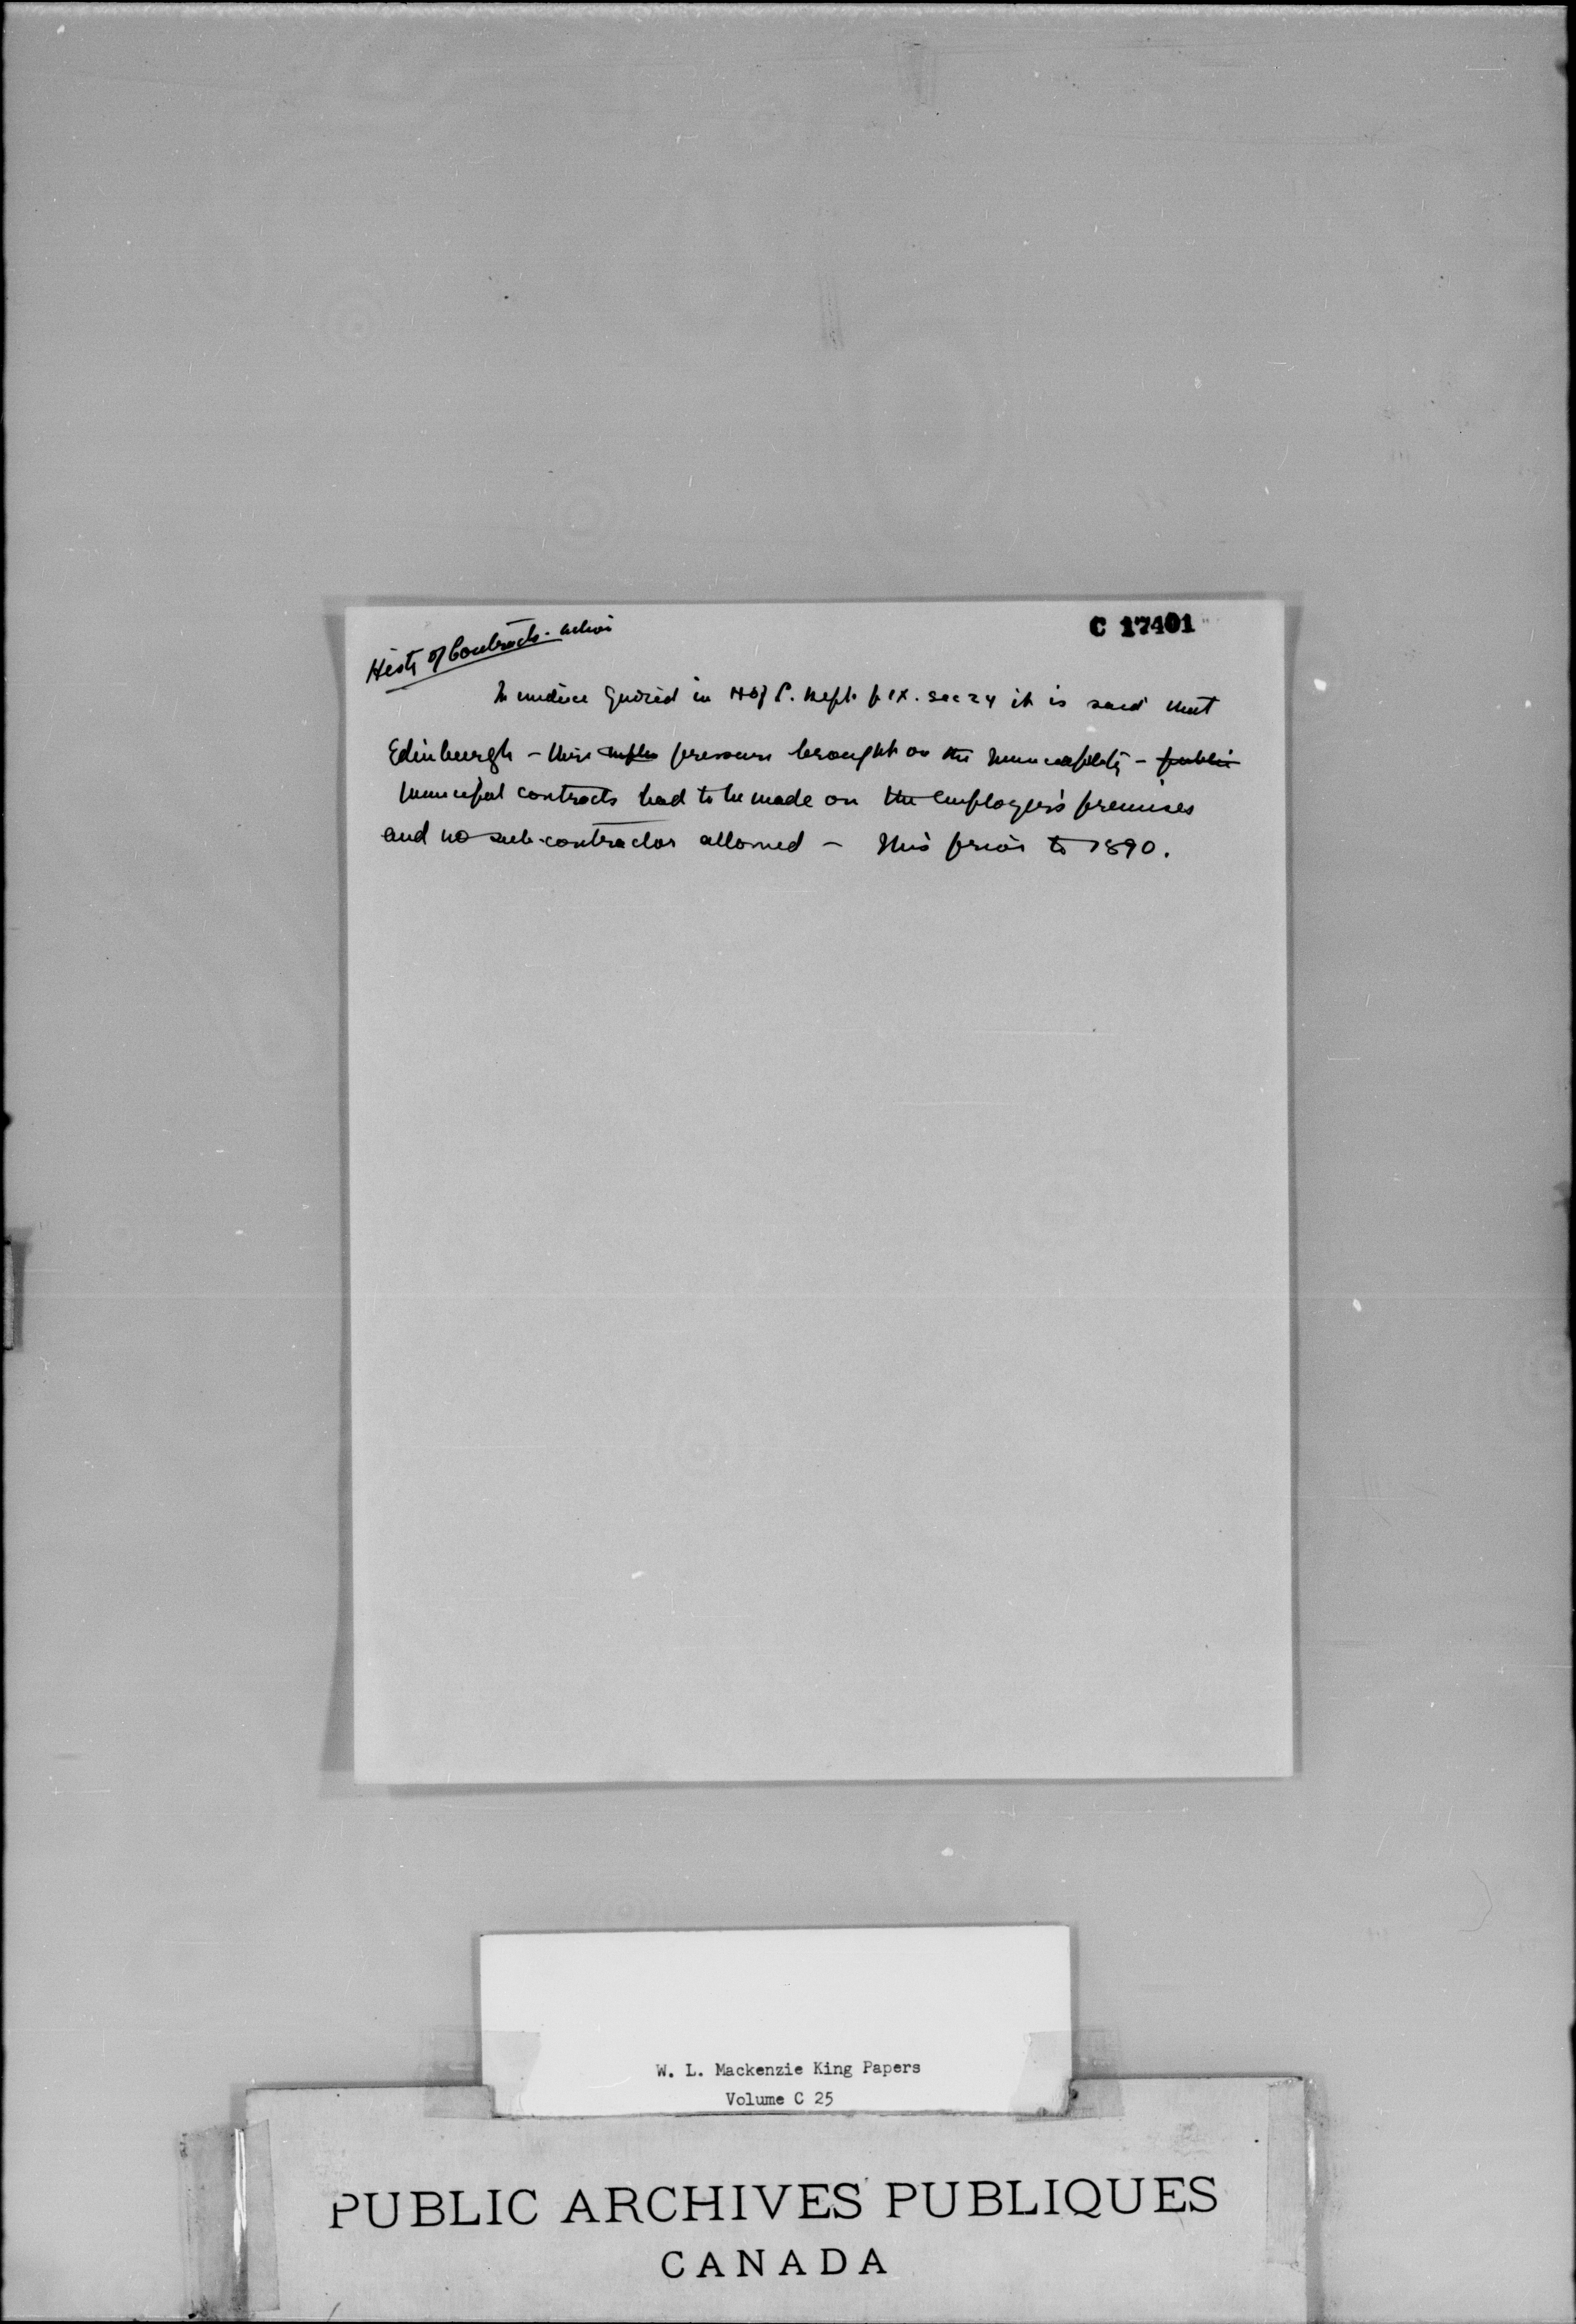 C 17401
Histy of Contracts - action
In evidence quoted in H of L. Rept. p IX. sec 24 it is said that
Edinburgh - thro pressure brought on the municipality - public
municipal contracts had to be made on the employer's premises
and no sub-contractor allowed - This prior to 1890.
W. L. Mackenzie King Papers
Volume C 25
PUBLIC ARCHIVES PUBLIQUES
CANADA